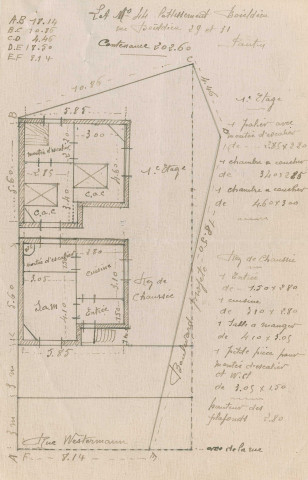 A.B 18.14
B.C 10.85
C.D 4.46
D.E 18.50
E.F 8.14
Lot No 44 Lotissement Boieldieu
rue Boieldieu 29 et 31
Contenance 202.60
Pantin
10.85
C
4.46
B
5.85
3.00
montée d'escalier
2.85
4.60
C.a.C
C.a.C
5.60
1er Etage
D
1er Etage
1 palier avec
montée d'escalier
de
1 chambre a coucher
de 3.40 x 2.85
1 chambre a coucher
de 4.60 x 3.00
montée d'escalier
2.80
3.05
cuisine
S.a.M
4.10
Entrée
1.50
5.60
5.85
Rez de
Chaussée
Boulevard projeté
Rez de Chaussée
1 Entrée
de 1.50 x 2.80
1 cuisine
de 3.10 x 2.80
1 Salle a manger
de 4.10 x 3.05
1 petite pièce pour
montée d'escalier
et W.C.
de 3.05 x 1.50
hauteur des
plafonds 2.80
3 m
3 m
Rue Westermann
axe de la rue
A
F
8.14